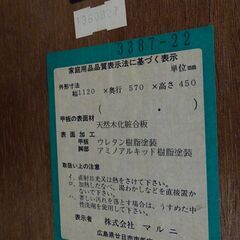 3387-22
家庭用品品質表示法に基づく表示
単位mm
外形寸法
幅1120×奥行570×高さ450
( ・ )
甲板の表面材
天然木化粧合板
表面加工
甲板 ウレタン樹脂塗装
脚部 アミノアルキッド樹脂塗装
取扱い上の注意
イ．直射日光又は熱をさけて下さい。
ロ．加熱したなべ、湯わかしなどを直接置かないで下さい。
ハ．著しい汚れを落とす場合は、うすめた中性洗剤を使用して下さい。
表示者 株式会社 マルニ
広島県廿日市市